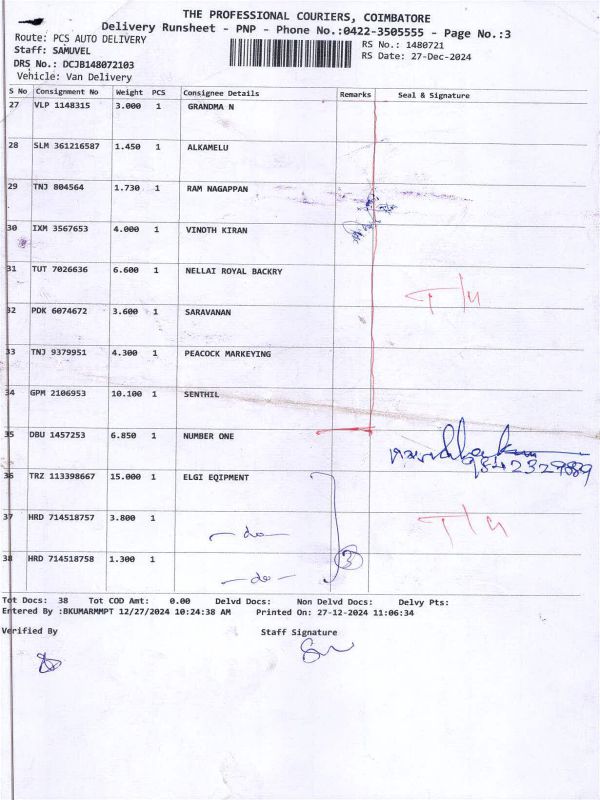 THE PROFESSIONAL COURIERS, COIMBATORE
Delivery Runsheet - PNP - Phone No.:0422-3505555 - Page No.:3
Route: PCS AUTO DELIVERY
RS No.: 1480721
Staff: SAMUVEL
RS Date: 27-Dec-2024
DRS No.: DCJB148072103
Vehicle: Van Delivery
S No Consignment No Weight PCS Consignee Details Remarks Seal & Signature
27 VLP 1148315 3.000 1 GRANDMA N
28 SLM 361216587 1.450 1 ALKAMELU
29 TNJ 804564 1.730 1 RAM NAGAPPAN
30 IXM 3567653 4.000 1 VINOTH KIRAN
31 TUT 7026636 6.600 1 NELLAI ROYAL BACKRY
32 PDK 6074672 3.600 1 SARAVANAN
33 TNJ 9379951 4.300 1 PEACOCK MARKEYING
34 GPM 2106953 10.100 1 SENTHIL
35 DBU 1457253 6.850 1 NUMBER ONE
36 TRZ 113398667 15.000 1 ELGI EQIPMENT
37 HRD 714518757 3.800 1 -do-
38 HRD 714518758 1.300 1 -do- 3
Tot Docs: 38 Tot COD Amt: 0.00 Delvd Docs: Non Delvd Docs: Delvy Pts:
Entered By :BKUMARMMPT 12/27/2024 10:24:38 AM Printed On: 27-12-2024 11:06:34
Verified By Staff Signature